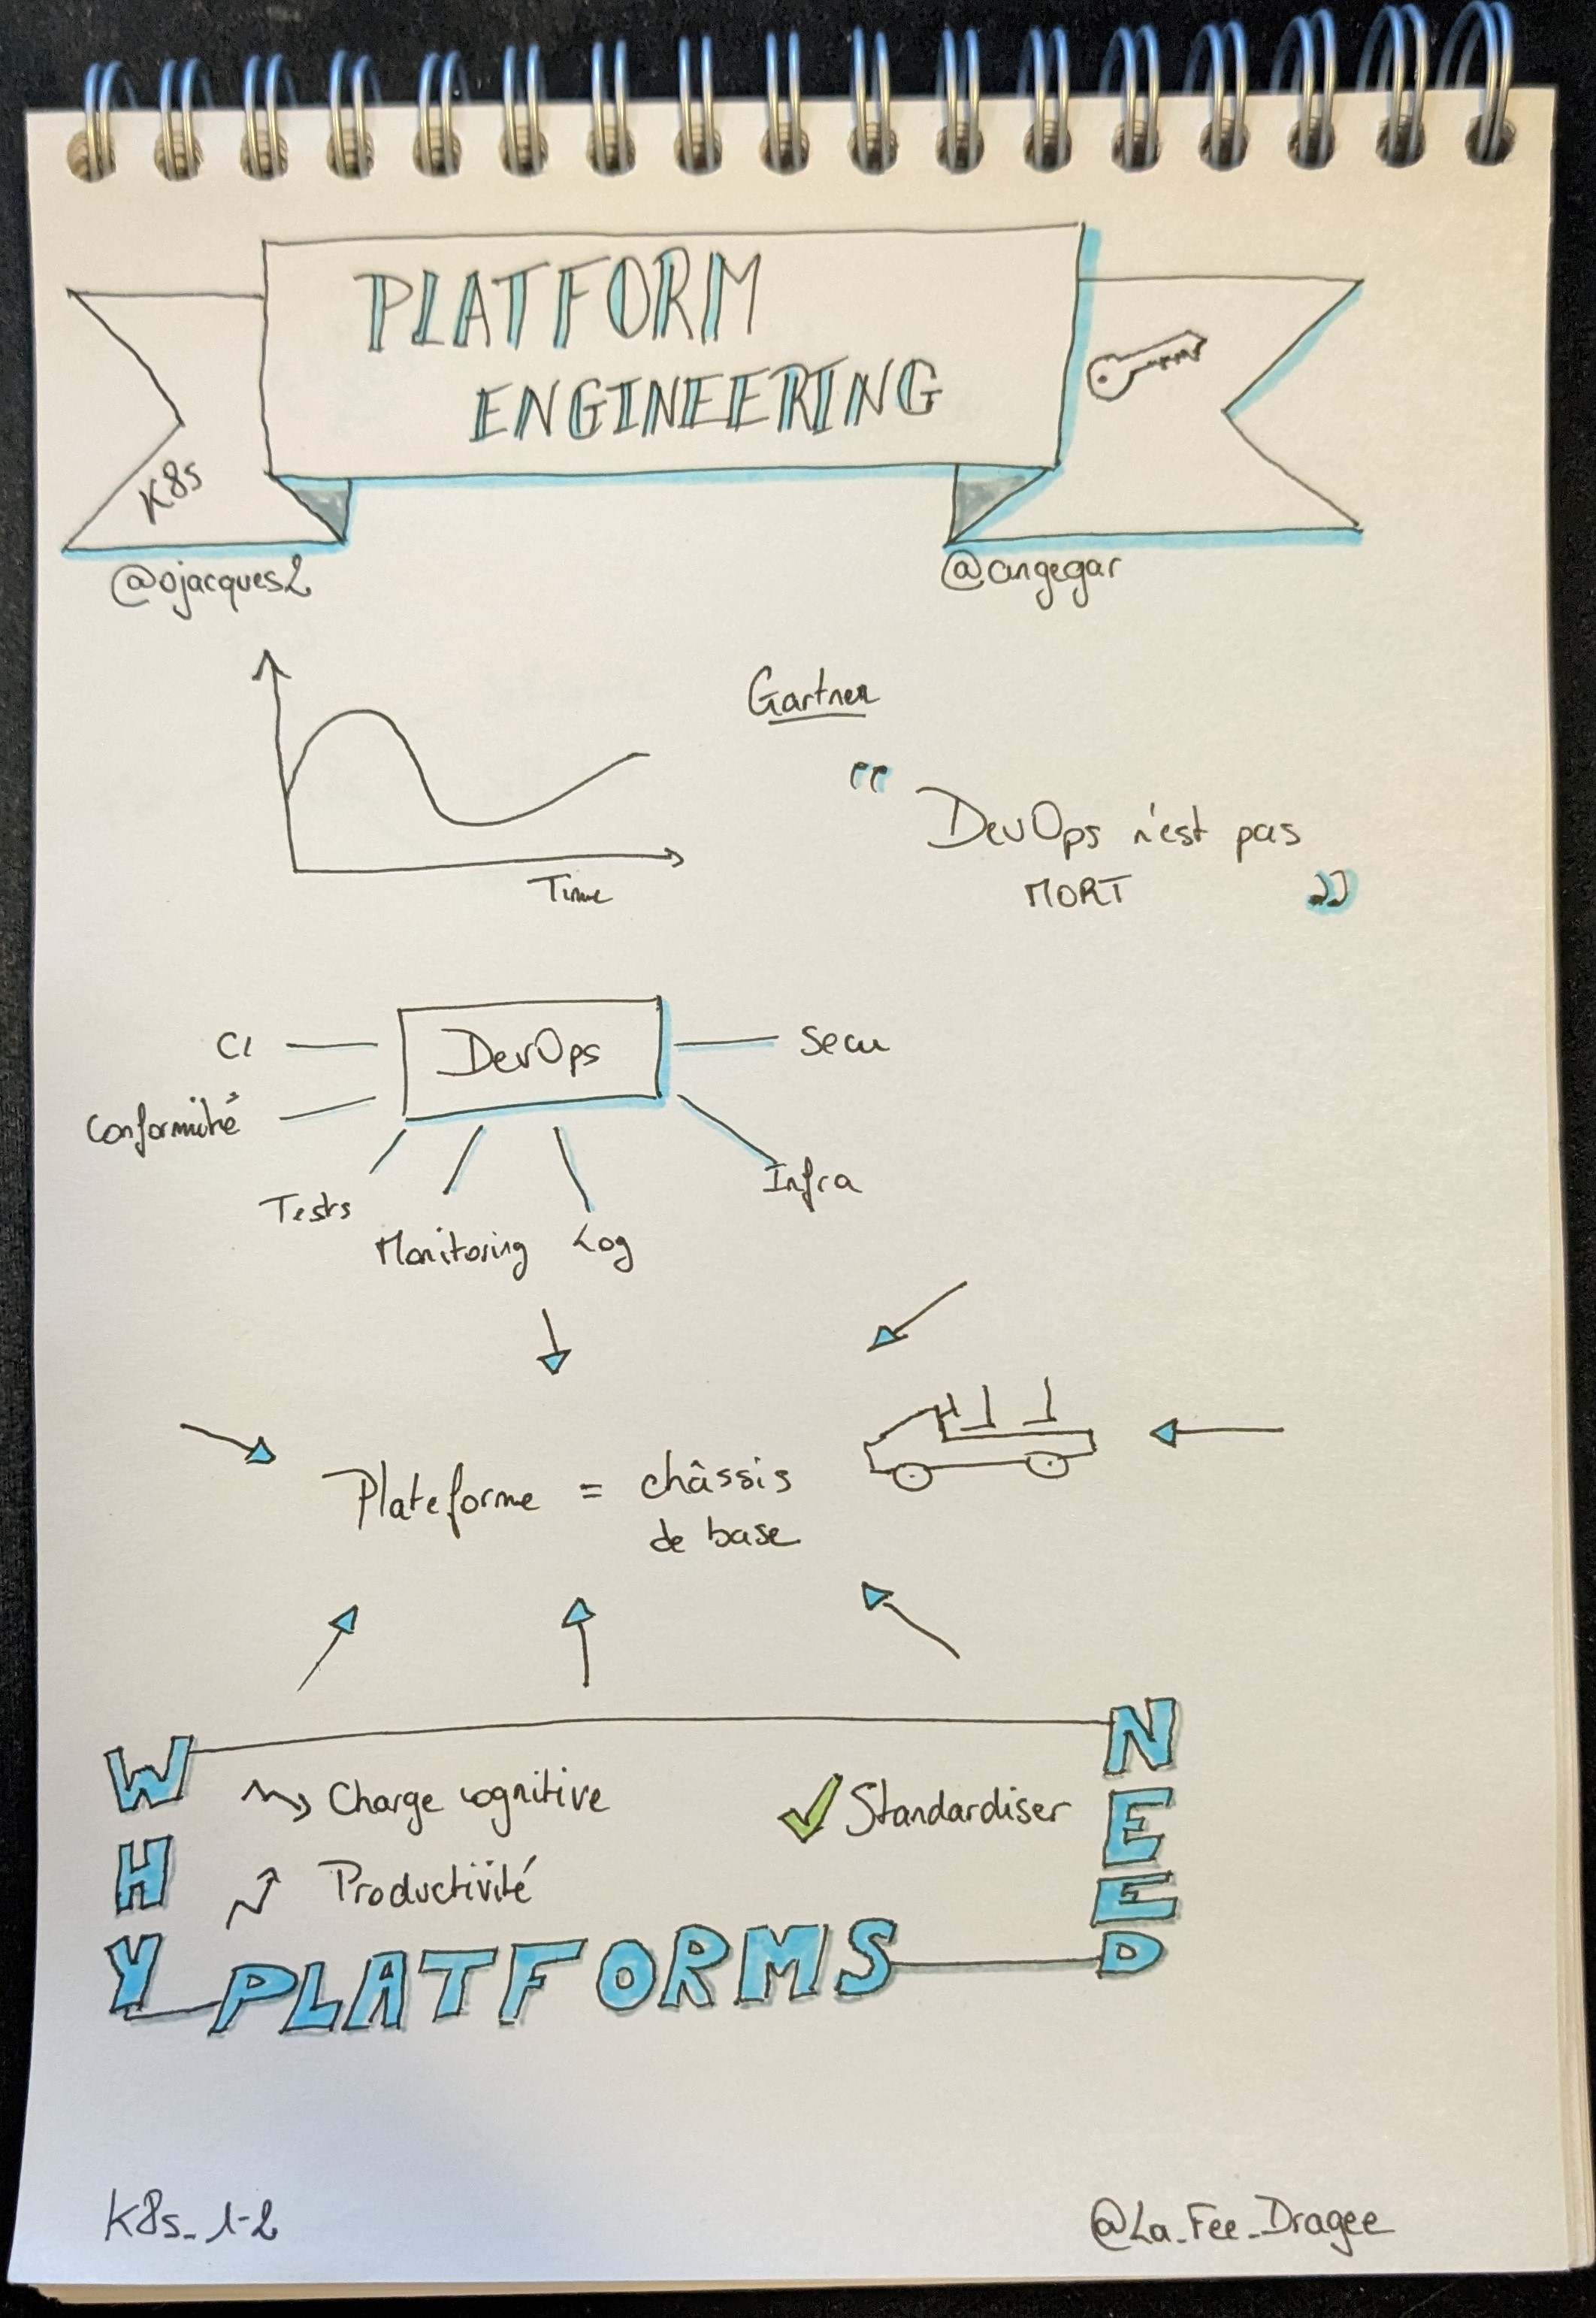 PLATFORM
ENGINEERING
K8s
@ojacques2
@angegar
Gartner
Time
" DevOps n'est pas
MORT "
DevOps
CI
Secu
Conformité
Infra
Tests
Monitoring
Log
Plateforme = châssis
de base
WHY
Charge cognitive
Standardiser
Productivité
PLATFORMS
NEED
K8s_1-2
@La_Fee_Dragee